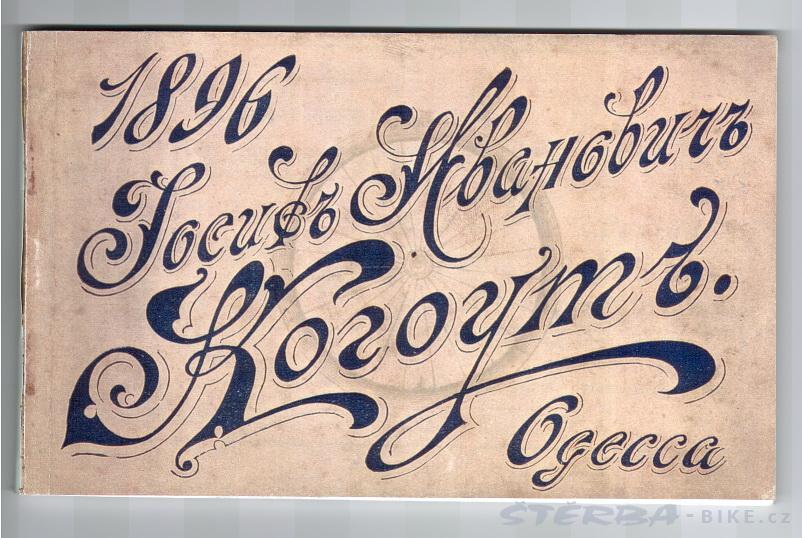 1896
Іосифъ Ивановичъ
Когоутъ.
Одесса
ŠTĚRBA-BIKE.cz